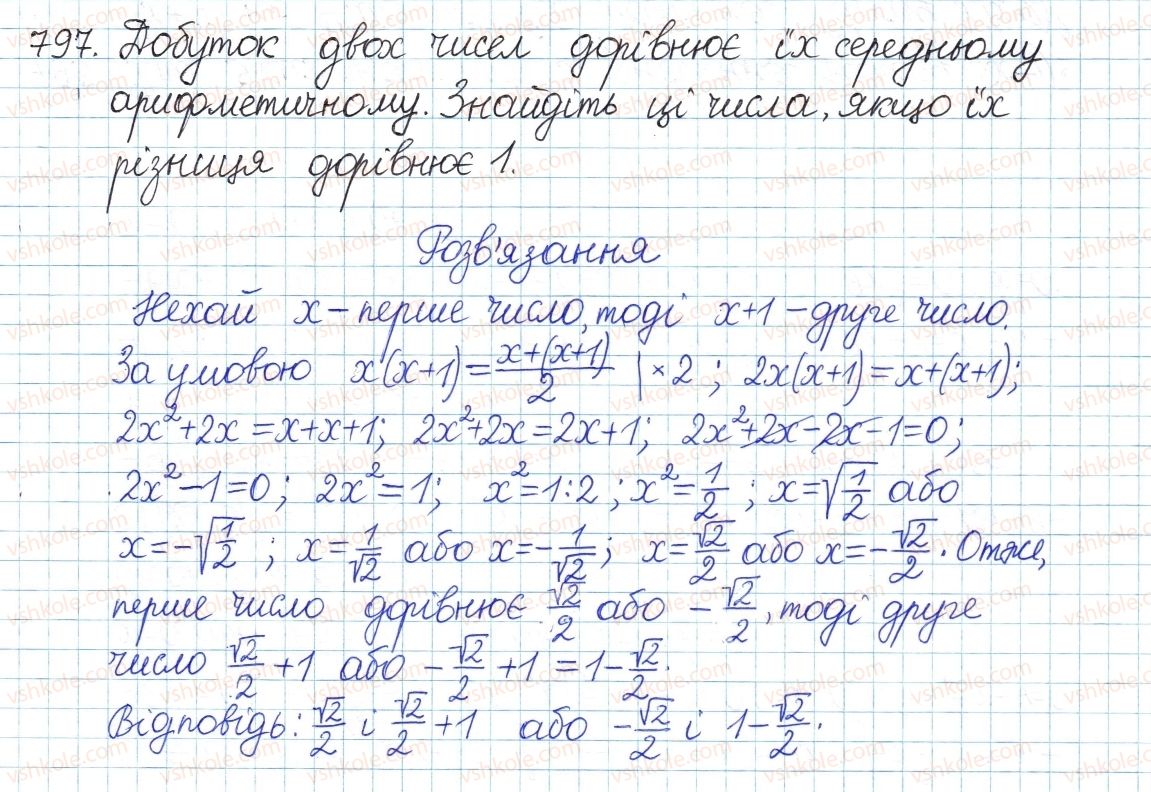 797. Добуток двох чисел дорівнює їх середньому
арифметичному. Знайдіть ці числа, якщо їх
різниця дорівнює 1.
Розв'язання
Нехай x – перше число, тоді x+1 – друге число.
За умовою x(x+1) = (x+(x+1))/2 | × 2 ; 2x(x+1) = x+(x+1);
2x²+2x = x+x+1; 2x²+2x = 2x+1; 2x²+2x–2x–1=0;
2x²–1=0; 2x²=1; x²=1:2; x²=1/2; x=√(1/2) або
x=–√(1/2); x=1/√2 або x=–1/√2; x=√2/2 або x=–√2/2. Отже,
перше число дорівнює √2/2 або –√2/2, тоді друге
число √2/2+1 або –√2/2+1=1–√2/2.
Відповідь: √2/2 і √2/2+1 або –√2/2 і 1–√2/2.
vshkole.com